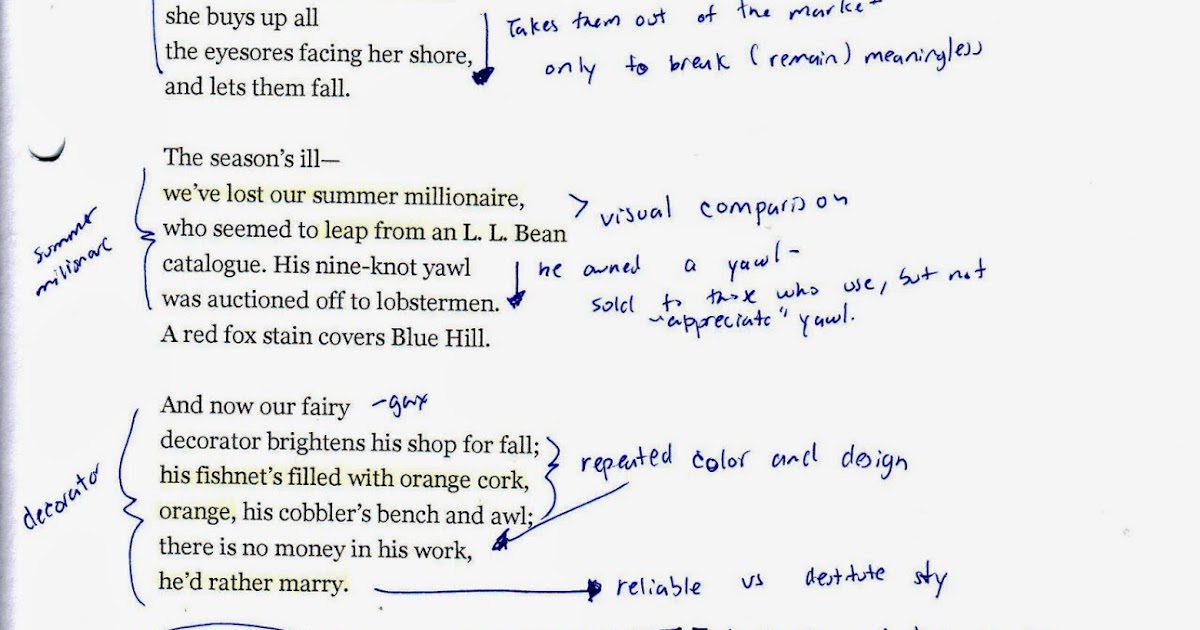 she buys up all
the eyesores facing her shore,
and lets them fall.
Takes them out of the market
only to break (remain) meaningless
The season's ill—
we've lost our summer millionaire,
who seemed to leap from an L. L. Bean
catalogue. His nine-knot yawl
was auctioned off to lobstermen.
A red fox stain covers Blue Hill.
summer
visual comparison
he owned a yawl-
sold to those who use, but not
"appreciate" yawl.
And now our fairy
decorator brightens his shop for fall;
his fishnet's filled with orange cork,
orange, his cobbler's bench and awl;
there is no money in his work,
he'd rather marry.
decorator
-gay
repeated color and design
reliable vs destitute